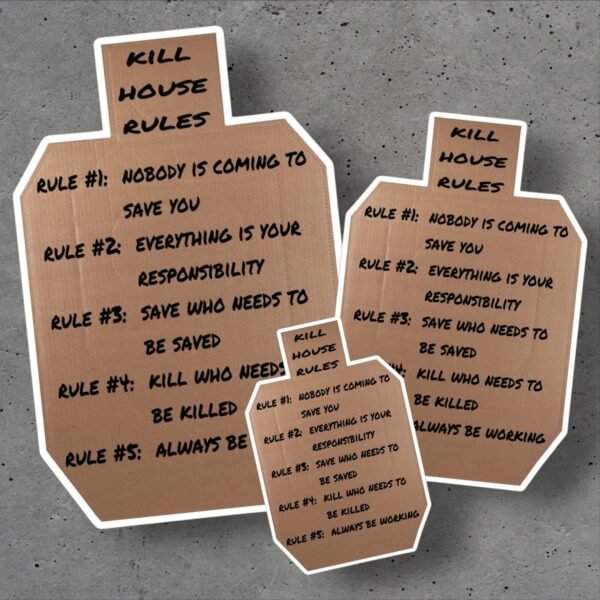 KILL
HOUSE
RULES
RULE #1: NOBODY IS COMING TO
SAVE YOU
RULE #2: EVERYTHING IS YOUR
RESPONSIBILITY
RULE #3: SAVE WHO NEEDS TO
BE SAVED
RULE #4: KILL WHO NEEDS
BE KILLED
RULE #5: ALWAYS BE
KILL
HOUSE
RULES
RULE #1: NOBODY IS COMING TO
SAVE YOU
RULE #2: EVERYTHING IS YOUR
RESPONSIBILITY
RULE #3: SAVE WHO NEEDS TO
BE SAVED
KILL WHO NEEDS TO
BE KILLED
ALWAYS BE WORKING
KILL
HOUSE
RULES
RULE #1: NOBODY IS COMING TO
SAVE YOU
RULE #2: EVERYTHING IS YOUR
RESPONSIBILITY
RULE #3: SAVE WHO NEEDS TO
BE SAVED
RULE #4: KILL WHO NEEDS TO
BE KILLED
RULE #5: ALWAYS BE WORKING